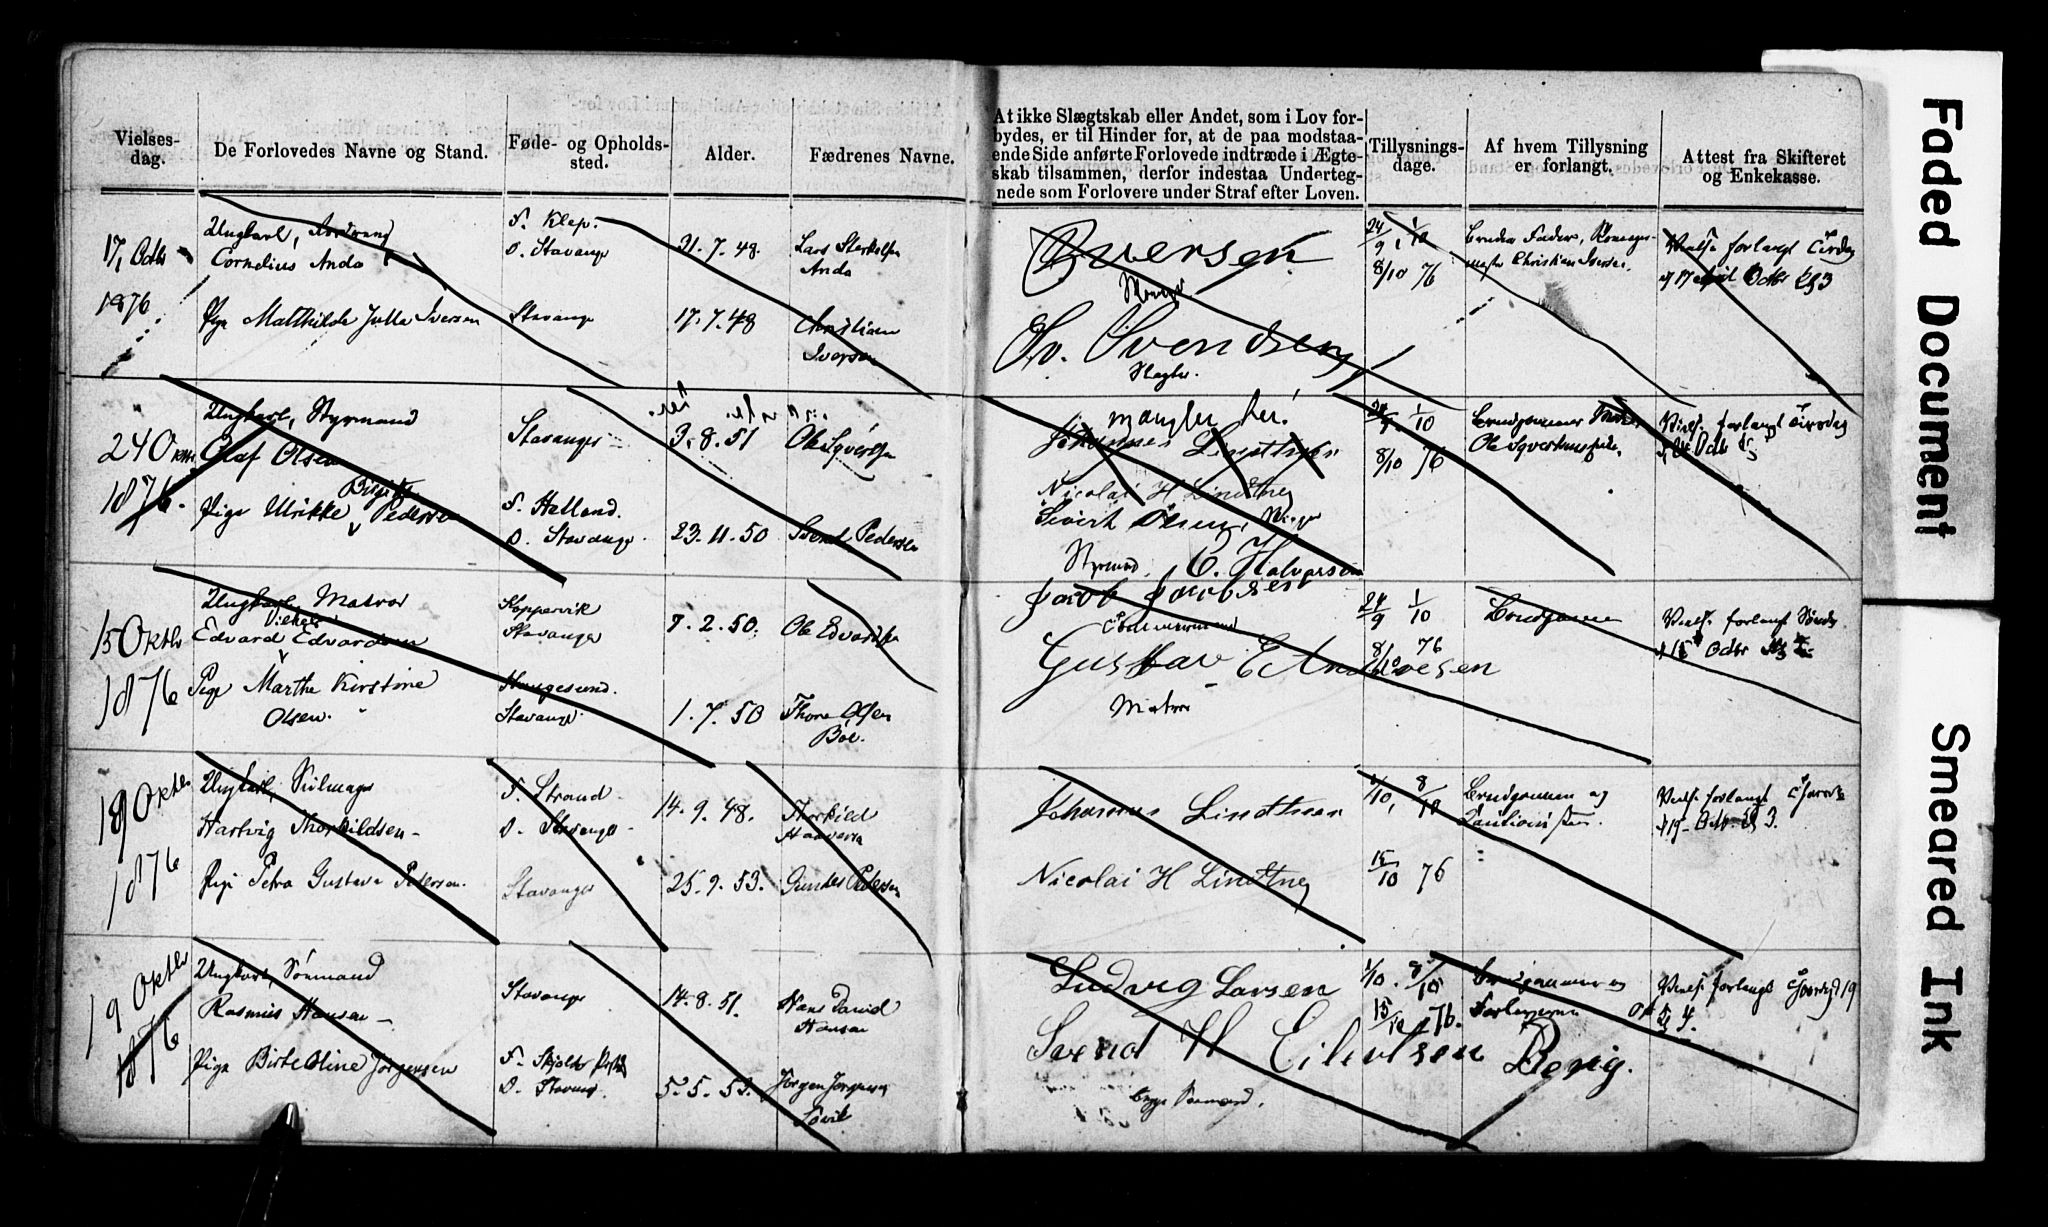 Vielses-
dag.
De Forlovedes Navne og Stand.
Føde- og Opholds-
sted.
Alder.
Fædrenes Navne.
At ikke Slægtskab eller Andet, som i Lov for-
bydes, er til Hinder for, at de paa modstaa-
ende Side anførte Forlovede indtræde i Ægte-
skab tilsammen, derfor indestaa Underteg-
nede som Forlovere under Straf efter Loven.
Tillysnings-
dage.
Af hvem Tillysning
er forlangt.
Attest fra Skifteret
og Enkekasse.
17, Octb
1876
Ungkarl,
Cornelius Anda
Pige Matthilde Julla Iversen
F. Klep.
O. Stavanger
Stavanger
21. 7. 48.
17. 7. 48
Lars
Anda
Christian
Iversen
Iversen
Sv. Svendsen
24/9, 1/10
8/10 76
Brudens Fader,
Christian Iversen.
Vielse forlangt Tirsdag
17 Octbr
24 Oktb
1876.
Ungkarl, Styrmand
Olaf Olsen
Pige Ulrikke Birgitte Pedersen
Stavanger
F. Hetland.
O. Stavanger
3. 8. 51
23. 11. 50
Ole
Svend Pedersen
mangler her!
Johannes Lindtner
Nicolai H Lindtner
Sivert Olsen,
Styrmand, C. Halvorsen
24/9 1/10
8/10 76
Brudgommens Fader
Ole
Vielse forlangt Tirsdag
Octbr
15 Oktb
1876
Ungkarl, Matros
Edvard Vilhelm Edvardsen
Pige Marthe Kirstine
Olsen.
Koppervik
Stavanger
Haugesund.
Stavanger
7. 2. 50.
1. 7. 50
Ole Edvardsen
Thore Olsen
Bøe.
Jacob Jacobsen
Gustav E Andresen
Matros
24/9 1/10
8/10 76
Brudgommen
Vielse forlangt Søndag
15 Octbr
19 Oktb
1876
Ungkarl, Seilmager
Hartvig Thorkildsen
Pige Petra Gustava Pedersen.
F. Strand
O. Stavanger
Stavanger
14. 9. 48.
25. 9. 53.
Thorkild
Gunder Pedersen
Johannes Lindtner
Nicolai H Lindtner
1/10, 8/10
15/10 76
Brudgommen og
Vielse forlangt Torsdag
19 Octbr. Kl 3.
19 Oktb
1876
Ungkarl, Sømand
Rasmus Hansen
Pige Birte Oline Jørgensen
Stavanger
F. Skjold
O. Stavanger
14. 8. 51.
5. 5. 53.
Hans David
Hansen
Jørgen Jørgensen
Ludvig Larsen
Svend H Eilertsen Berig.
Begge Sømænd.
1/10. 8/10
15/10 76.
Brudgommen og
Forloverne
Vielse forlangt Torsdag 19
Faded Document
Smeared Ink